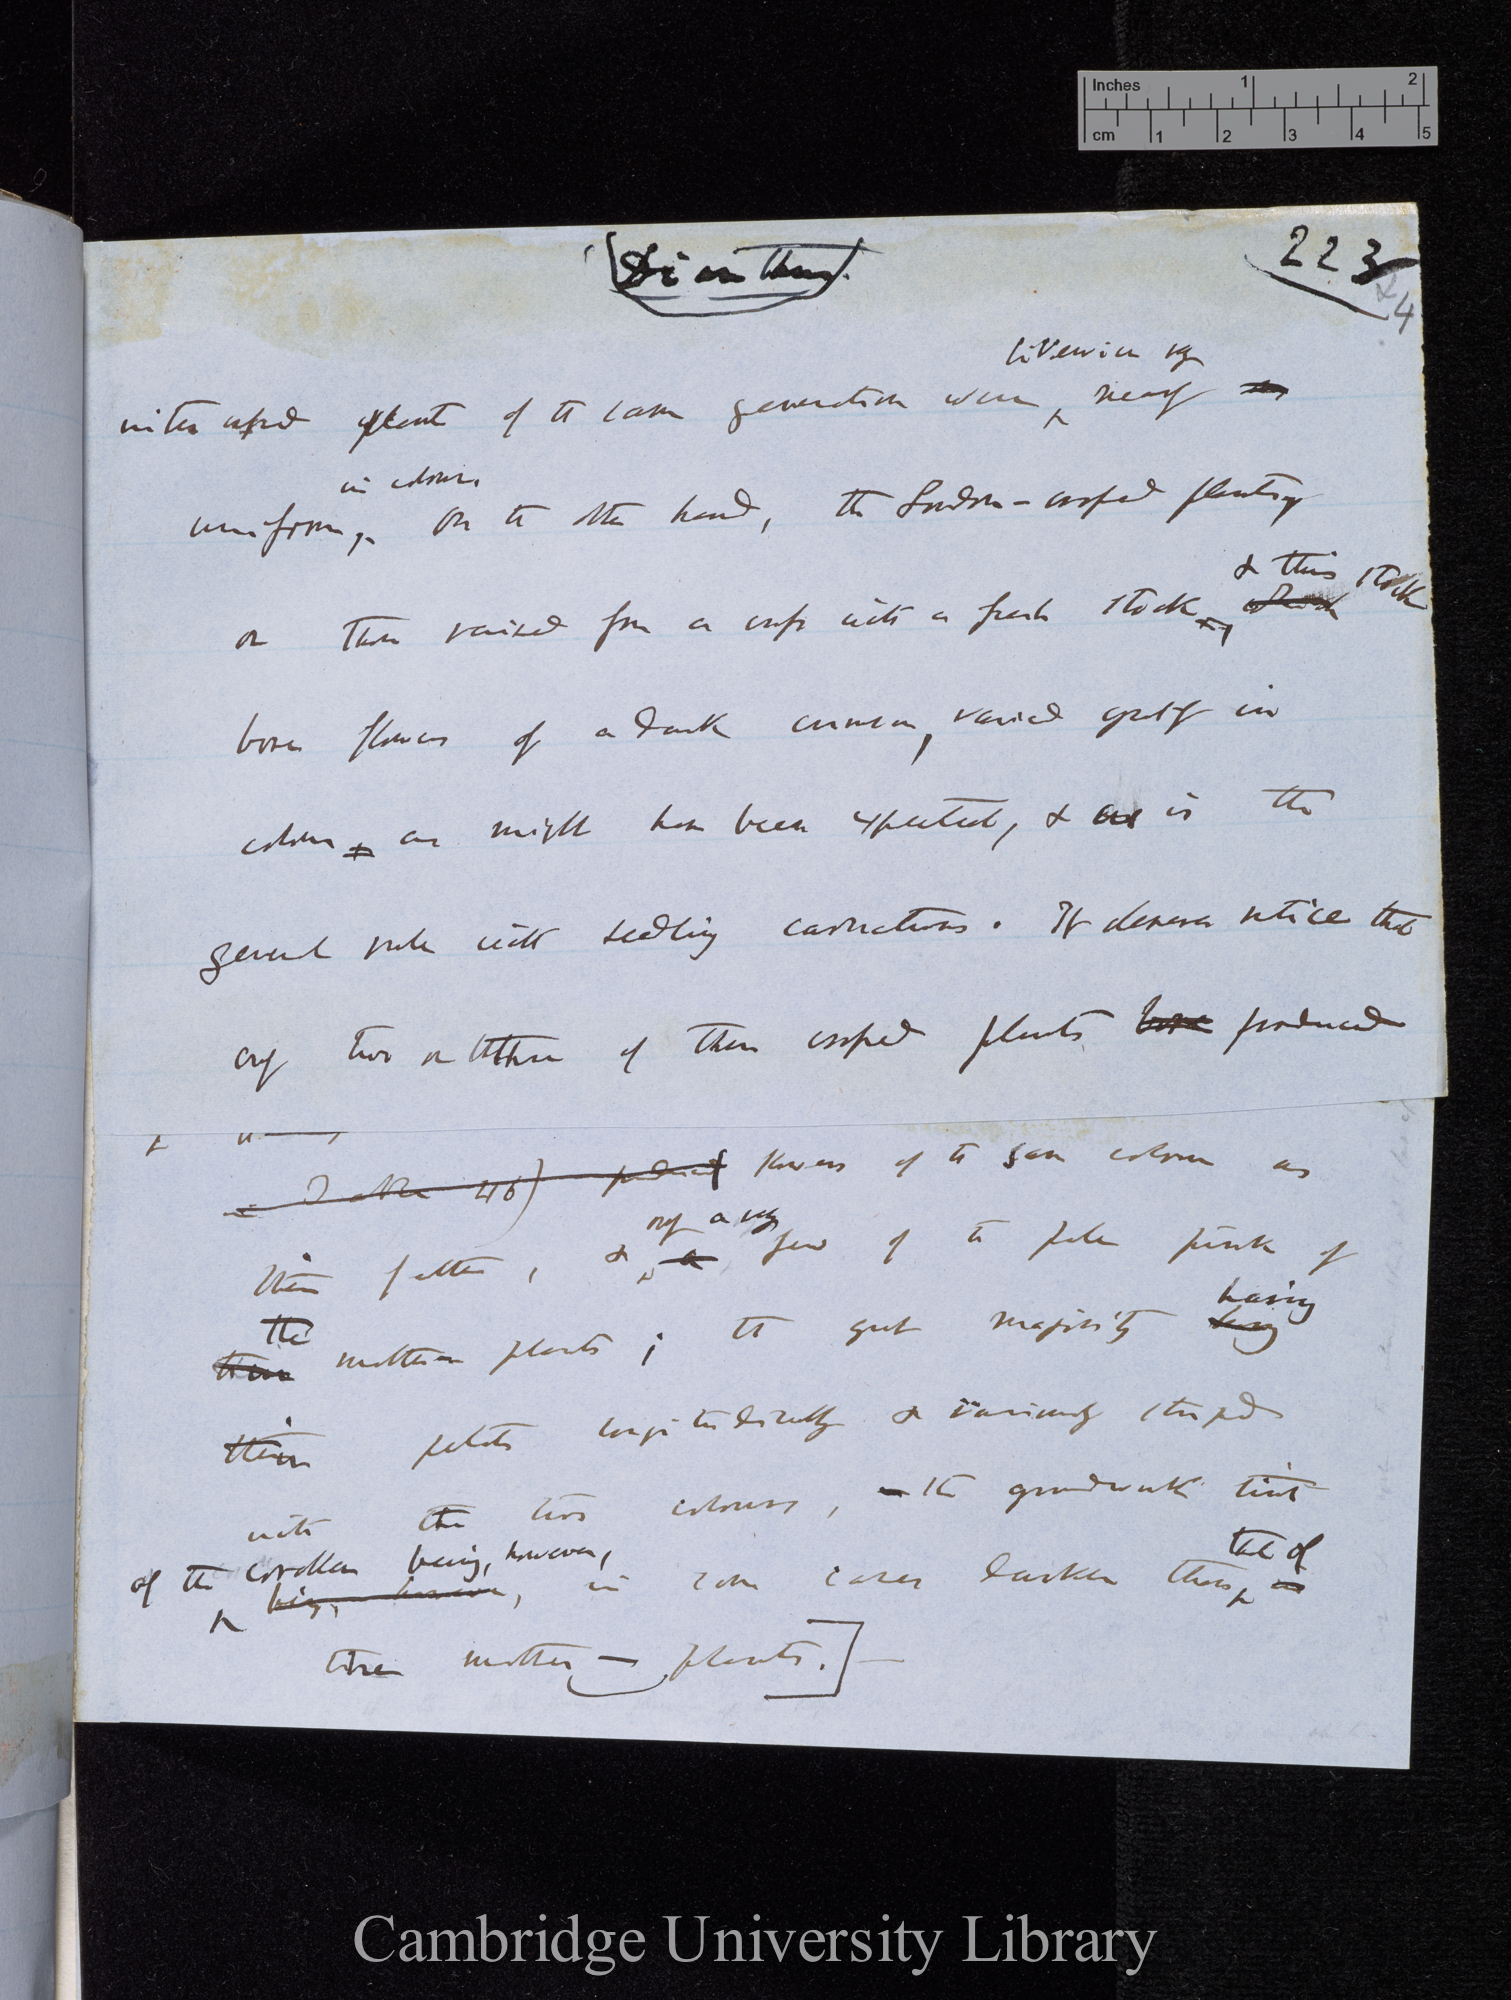 Inches 1 2
cm 1 2 3 4 5
(Dianthus.)
223
& 4
likewise very
intercrossed plants of the same generation were nearly
in colour.
uniform. On the other hand, the London-crossed plants,
& this stock
or those raised from a cross with a fresh stock,
bore flowers of a dark crimson, varied greatly in
colour, as might have been expected, & as is the
general rule with seedling carnations. It deserves notice that
only two or three of these crossed plants bore produced
flowers of the same colour as
only a very
their father, & a few of the pale pink of
the having
these mother-plants; the great majority
their petals longitudinally & variously striped
with the two colours, — the groundwork tint
of the corolla being, however, the of
being, however, in some cases darker than in
their mother-plants.]—
Cambridge University Library